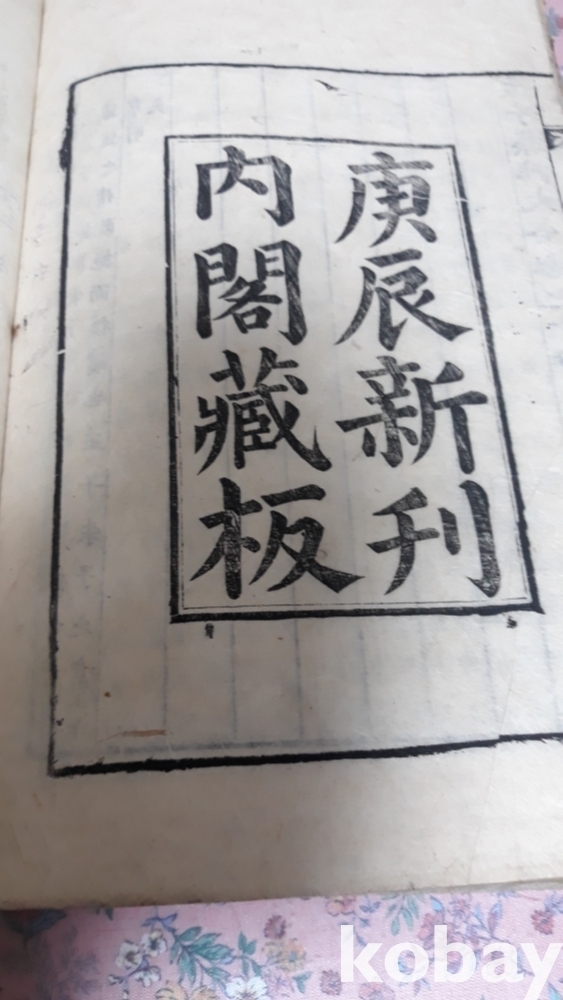 庚辰新刊
内閣藏板
kobay